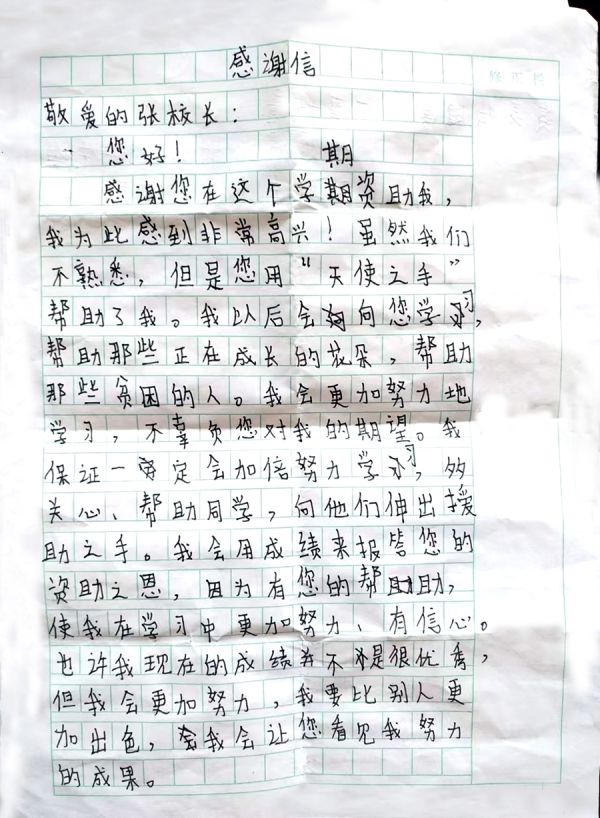 感谢信
敬爱的张校长：
您好！
期
感谢您在这个学期资助我，
我为此感到非常高兴！虽然我们
不熟悉，但是您用“天使之手”
帮助了我。我以后会向您学习，
帮助那些正在成长的花朵，帮助
那些贫困的人。我会更加努力地
学习，不辜负您对我的期望。我
保证一定会加倍努力学习，多
关心、帮助同学，向他们伸出援
助之手。我会用成绩来报答您的
资助之恩，因为有您的帮助，
使我在学习中更加努力、有信心。
也许我现在的成绩并不是很优秀，
但我会更加努力，我要比别人更
加出色，我会让您看见我努力
的成果。